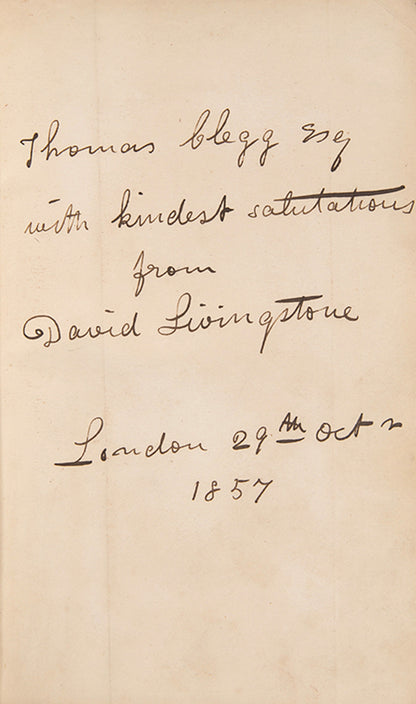 Thomas Clegg Esq
with kindest salutations
from
David Livingstone
London 29th Octr
1857